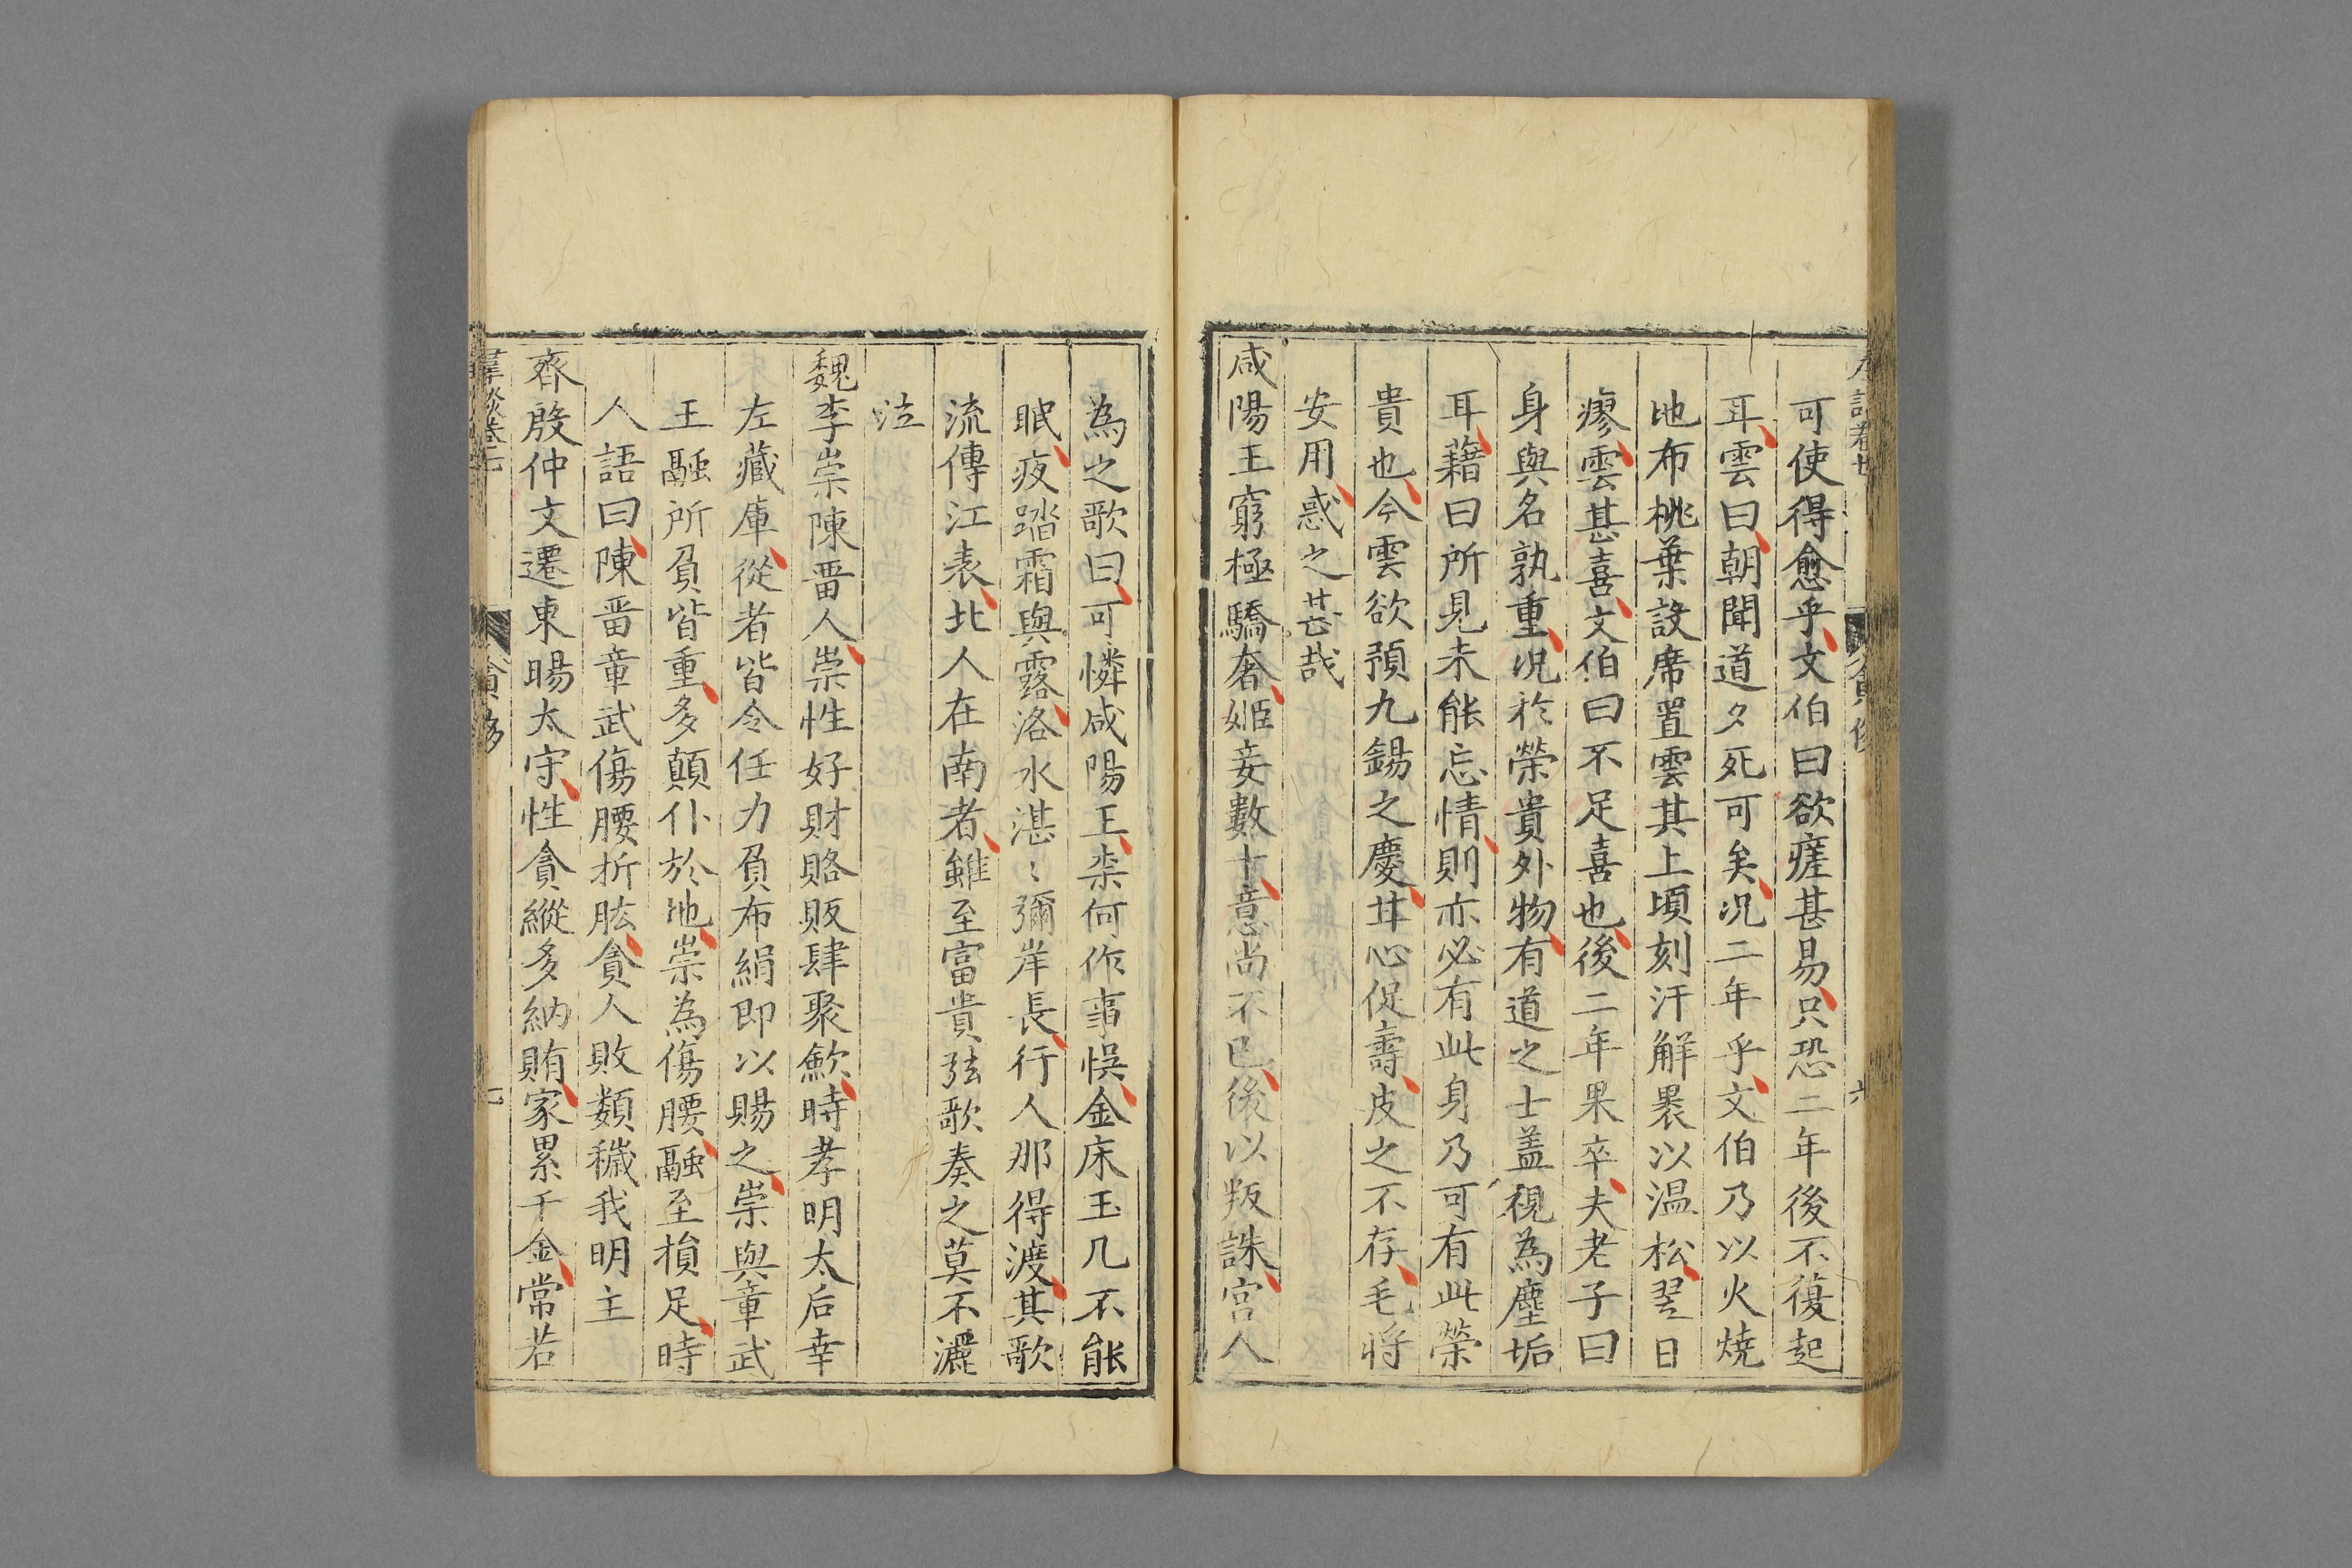 可使得愈乎文伯曰欲瘥甚易只恐二年後不復起
耳雲曰朝聞道夕死可矣况二年乎文伯乃以火燒
地布桃葉設席置雲其上頃刻汗解裹以温松翌日
瘳雲甚喜文伯曰不足喜也後二年果卒夫老子曰
身與名孰重况於榮貴外物有道之士盖視為塵垢
耳藉曰所見未能忘情則亦必有此身乃可有此榮
貴也今雲欲預九錫之慶甘心促壽皮之不存毛将
安用惑之甚哉
咸陽王窮極驕奢姬妾數十意尚不已後以叛誅宫人
為之歌曰可憐咸陽王柰何作事悮金床玉几不能
眠夜踏霜與露洛水湛〻彌岸長行人那得渡其歌
流傳江表北人在南者雖至富貴弦歌奏之莫不灑
泣
魏李崇陳畱人崇性好財賂販肆聚歛時孝明太后幸
左藏庫從者皆令任力負布絹即以賜之崇與章武
王融所負皆重多顛仆於地崇為傷腰融至損足時
人語曰陳畱章武傷腰折肱貪人敗類穢我明主
齊殷仲文遷東暘太守性貪縱多納賄家累千金常若